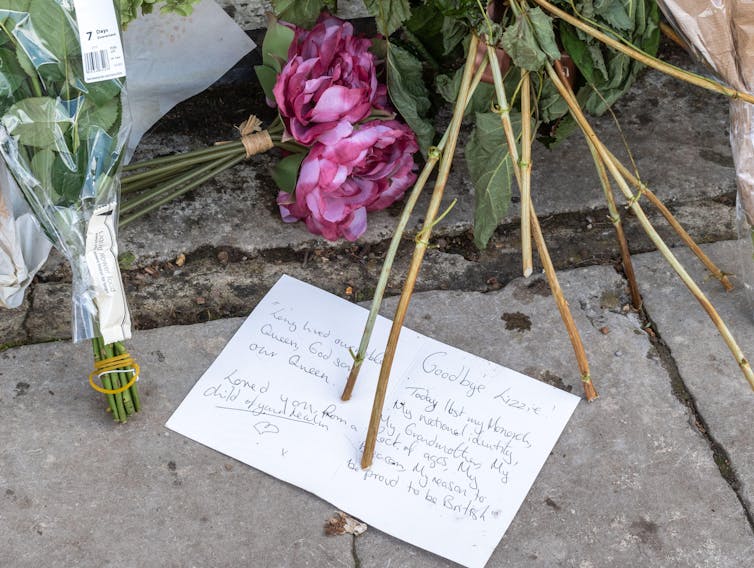 7
Days
"Long lived our
Queen, God
our Queen.
Loved you, from a
child of your realm
x
Goodbye Lizzie!
Today I lost my Monarch,
My national identity,
My Grandmother, My
of ages, My
My reason to
be proud to be British